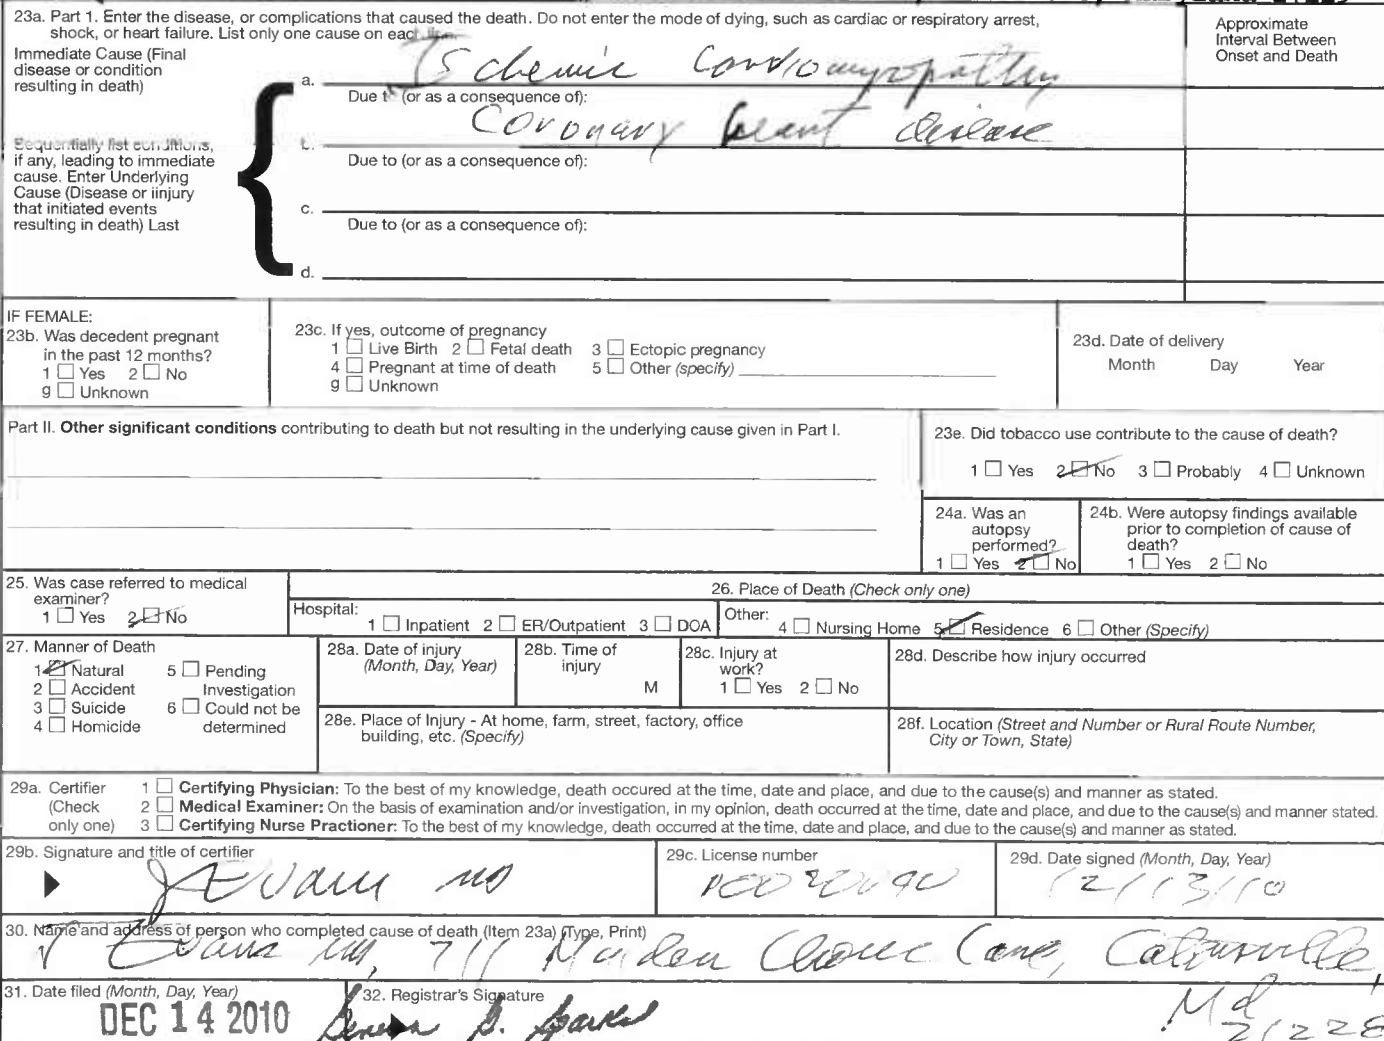 23a. Part 1. Enter the disease, or complications that caused the death. Do not enter the mode of dying, such as cardiac or respiratory arrest,
shock, or heart failure. List only one cause on each line.
Approximate
Interval Between
Onset and Death
Immediate Cause (Final
disease or condition
resulting in death)
a. Ischemic Cardiomyopathy
Due to (or as a consequence of):
Sequentially list conditions,
if any, leading to immediate
cause. Enter Underlying
Cause (Disease or iinjury
that initiated events
resulting in death) Last
Coronary heart disease
Due to (or as a consequence of):
c.
Due to (or as a consequence of):
d.
IF FEMALE:
23b. Was decedent pregnant
in the past 12 months?
1 ☐ Yes 2 ☐ No
9 ☐ Unknown
23c. If yes, outcome of pregnancy
1 ☐ Live Birth 2 ☐ Fetal death 3 ☐ Ectopic pregnancy
4 ☐ Pregnant at time of death 5 ☐ Other (specify)
9 ☐ Unknown
23d. Date of delivery
Month Day Year
Part II. Other significant conditions contributing to death but not resulting in the underlying cause given in Part I.
23e. Did tobacco use contribute to the cause of death?
1 ☐ Yes 2 ☑ No 3 ☐ Probably 4 ☐ Unknown
24a. Was an
autopsy
performed?
1 ☐ Yes 2 ☑ No
24b. Were autopsy findings available
prior to completion of cause of
death?
1 ☐ Yes 2 ☐ No
25. Was case referred to medical
examiner?
1 ☐ Yes 2 ☑ No
26. Place of Death (Check only one)
Hospital:
1 ☐ Inpatient 2 ☐ ER/Outpatient 3 ☐ DOA
Other:
4 ☐ Nursing Home 5 ☑ Residence 6 ☐ Other (Specify)
27. Manner of Death
1 ☑ Natural 5 ☐ Pending
2 ☐ Accident Investigation
3 ☐ Suicide 6 ☐ Could not be
4 ☐ Homicide determined
28a. Date of injury
(Month, Day, Year)
28b. Time of
injury
M
28c. Injury at
work?
1 ☐ Yes 2 ☐ No
28d. Describe how injury occurred
28e. Place of Injury - At home, farm, street, factory, office
building, etc. (Specify)
28f. Location (Street and Number or Rural Route Number,
City or Town, State)
29a. Certifier
(Check
only one)
1 ☐ Certifying Physician: To the best of my knowledge, death occured at the time, date and place, and due to the cause(s) and manner as stated.
2 ☐ Medical Examiner: On the basis of examination and/or investigation, in my opinion, death occurred at the time, date and place, and due to the cause(s) and manner stated.
3 ☐ Certifying Nurse Practioner: To the best of my knowledge, death occurred at the time, date and place, and due to the cause(s) and manner as stated.
29b. Signature and title of certifier
J Evans MD
29c. License number
29d. Date signed (Month, Day, Year)
12/13/10
30. Name and address of person who completed cause of death (Item 23a) (Type, Print)
J Evans MD, 711 Maiden Choice Lane, Catonsville,
Md
21228
31. Date filed (Month, Day, Year)
DEC 14 2010
32. Registrar's Signature